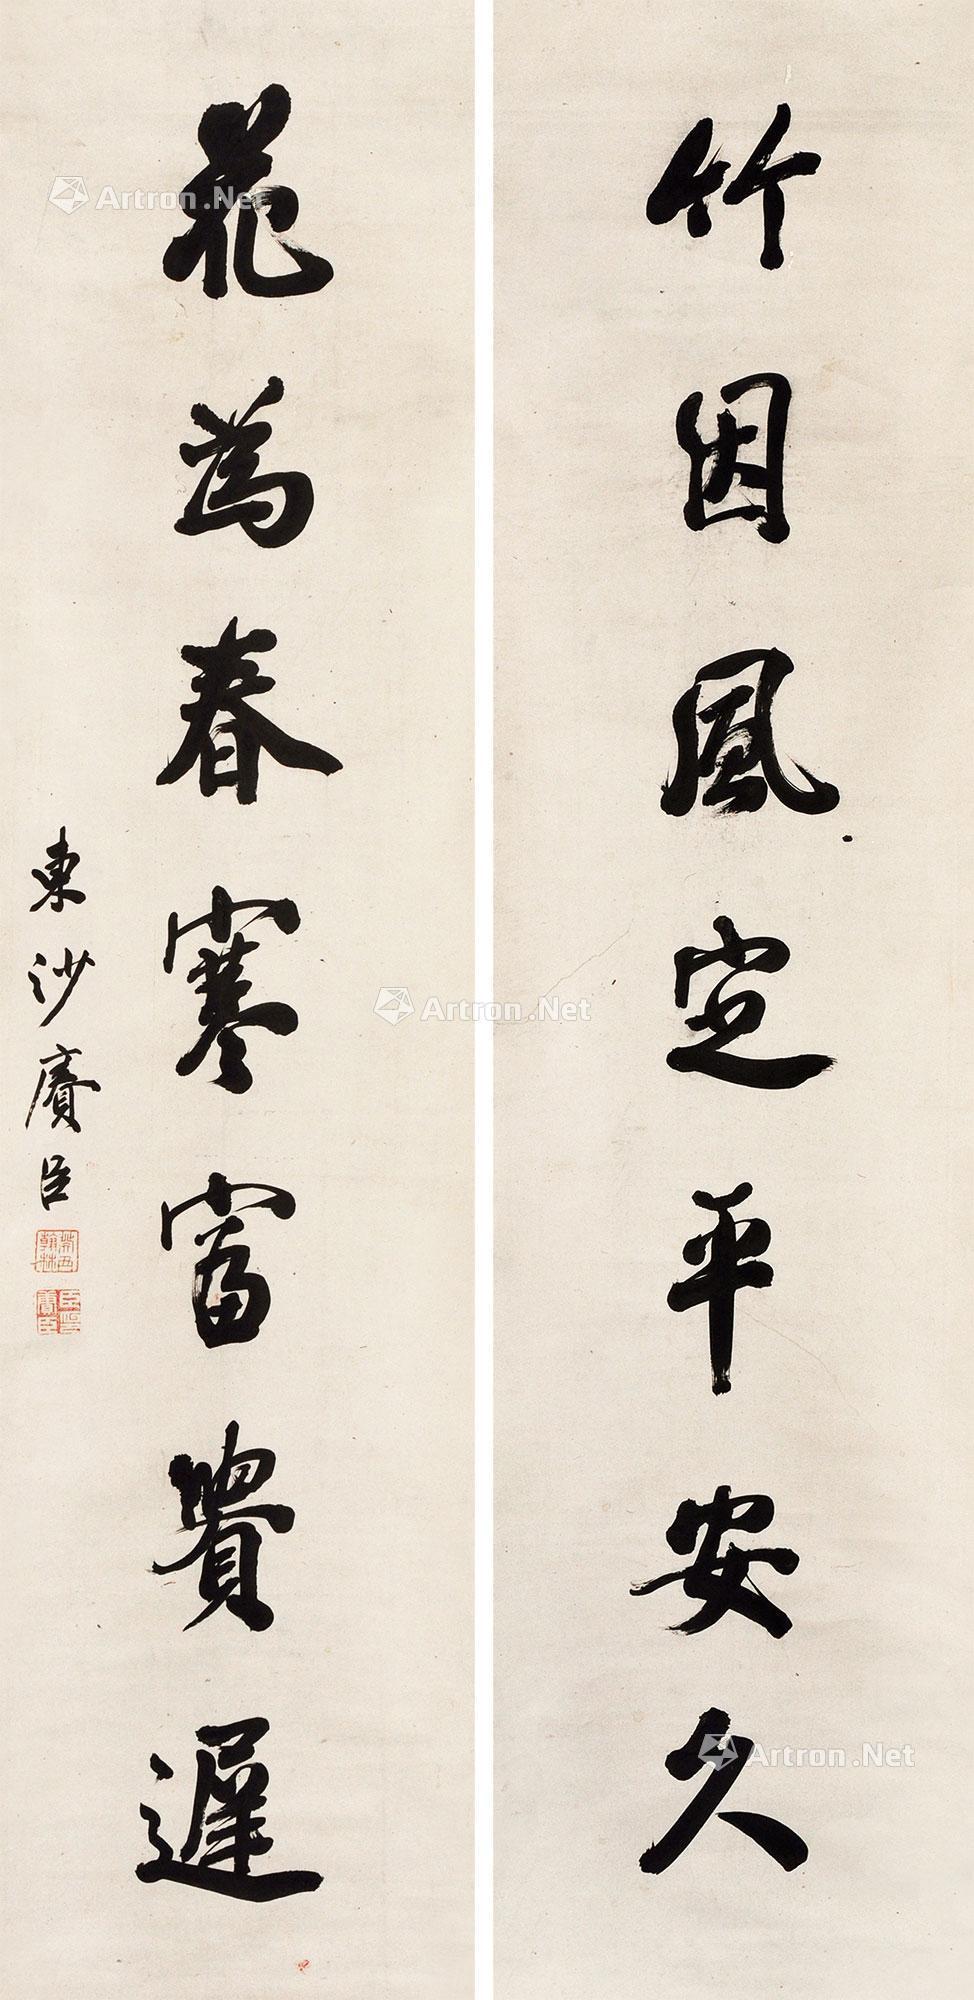 竹因風定平安久
花為春寒富貴遲
東沙賡臣
癸丑翰林
臣印賡臣
Artron.Net
Artron.Net
Artron.Net